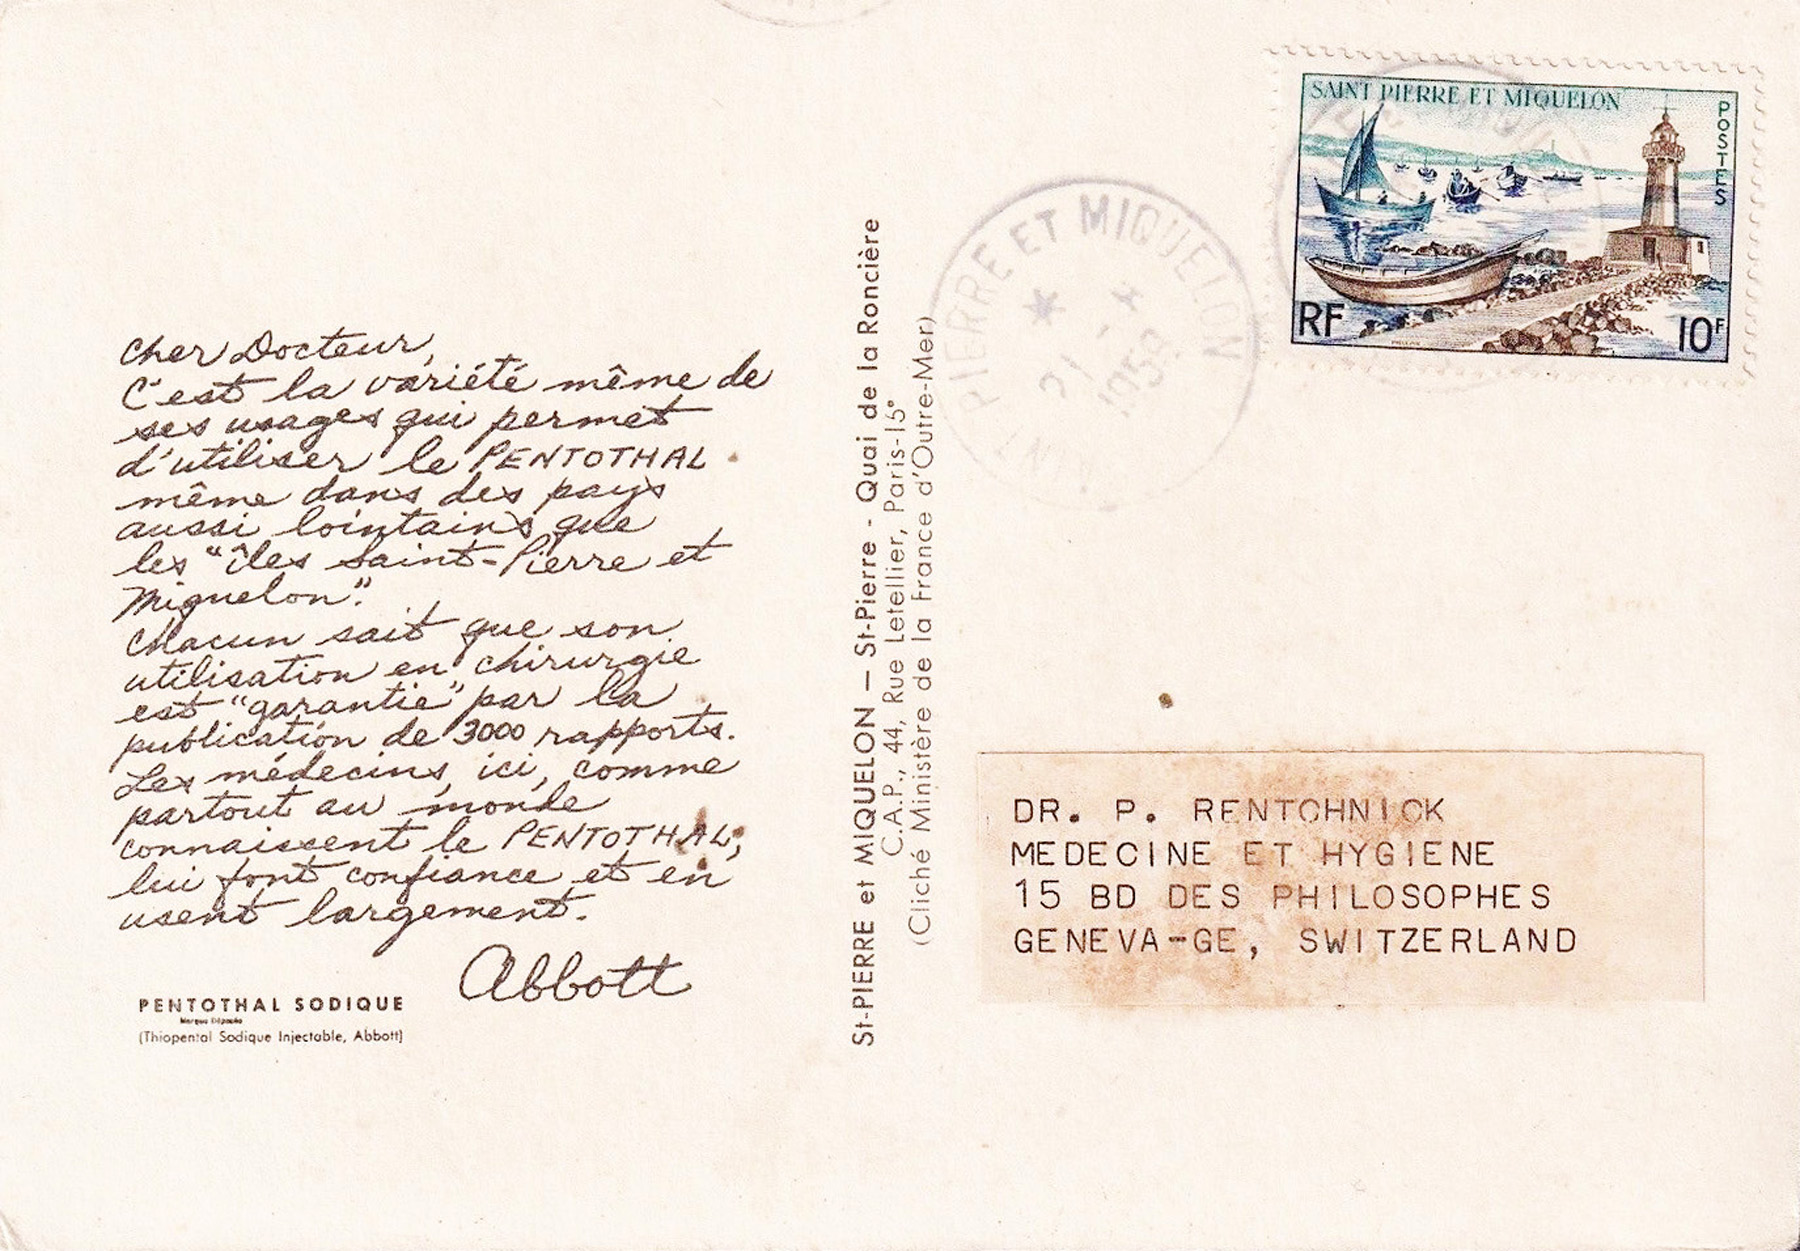 Cher Docteur,
C'est la variété même de
ses usages qui permet
d'utiliser le PENTOTHAL
même dans des pays
aussi lointains que
les "îles Saint-Pierre et
Miquelon".
Chacun sait que son
utilisation en chirurgie
est "garantie" par la
publication de 3000 rapports.
Les médecins, ici, comme
partout au monde
connaissent le PENTOTHAL,
lui font confiance et en
usent largement.
Abbott
PENTOTHAL SODIQUE
Marque Déposée
(Thiopental Sodique Injectable, Abbott)
St-PIERRE et MIQUELON — St-Pierre - Quai de la Roncière
C.A.P., 44, Rue Letellier, Paris-15e
(Cliché Ministère de la France d'Outre-Mer)
PIERRE ET MIQUELON
21
SAINT PIERRE ET MIQUELON
POSTES
RF
10F
DR. P. RENTCHNICK
MEDECINE ET HYGIENE
15 BD DES PHILOSOPHES
GENEVA-GE, SWITZERLAND